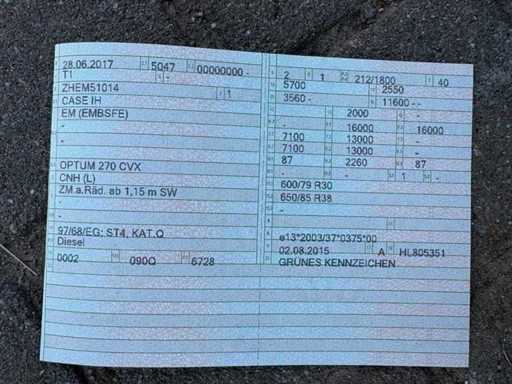 28.06.2017 5047 00000000 -
T1 -
ZHEM51014 1
CASE IH
EM (EMBSFE)
-
-
-
OPTUM 270 CVX
CNH (L)
ZM.a.Räd. ab 1,15 m SW
-
-
97/68/EG; ST4, KAT.Q
Diesel
0002 090Q 6728
2 1 212/1800 40
5700 2550
3560 - 11600 - -
2000 -
- 16000 16000
7100 13000 -
7100 13000 -
87 2260 87
- - 1 -
600/79 R30
650/85 R38
-
-
e13*2003/37*0375*00
02.08.2015 A HL805351
GRÜNES KENNZEICHEN